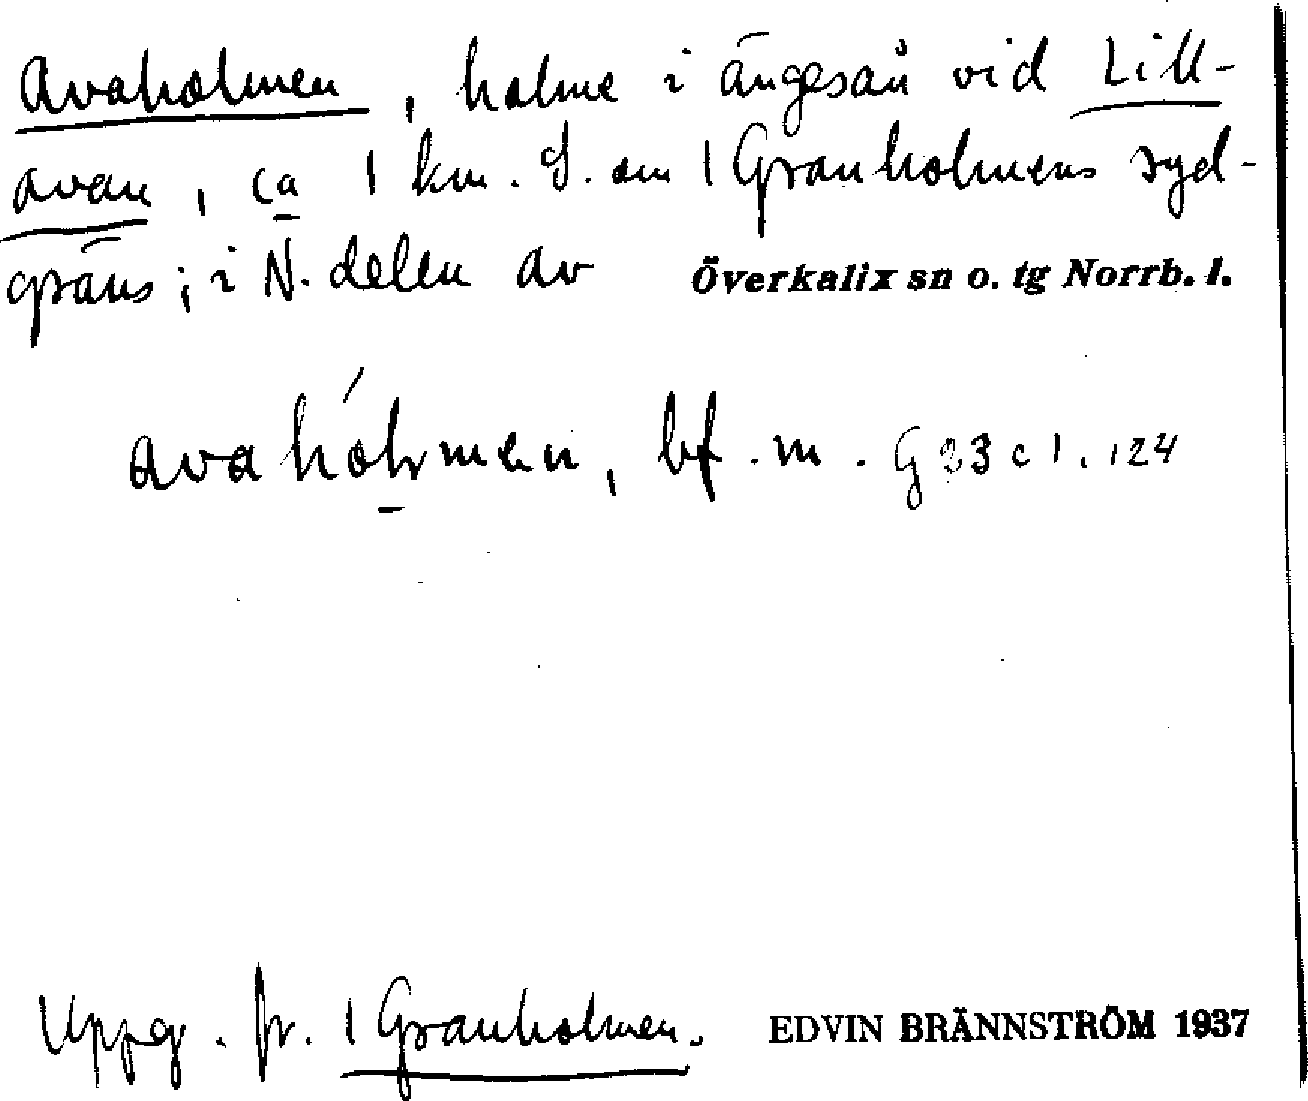 Avaholmen, holme i ängesån vid Lill-
avan, ca 1 km. S. om 1 Granholmens syd-
gräns; i N. delen av Överkalix sn o. tg Norrb. l.
avahólmen, bf. m. G 23 c 1. 124
Uppg. fr. 1 Granholmen. EDVIN BRÄNNSTRÖM 1937